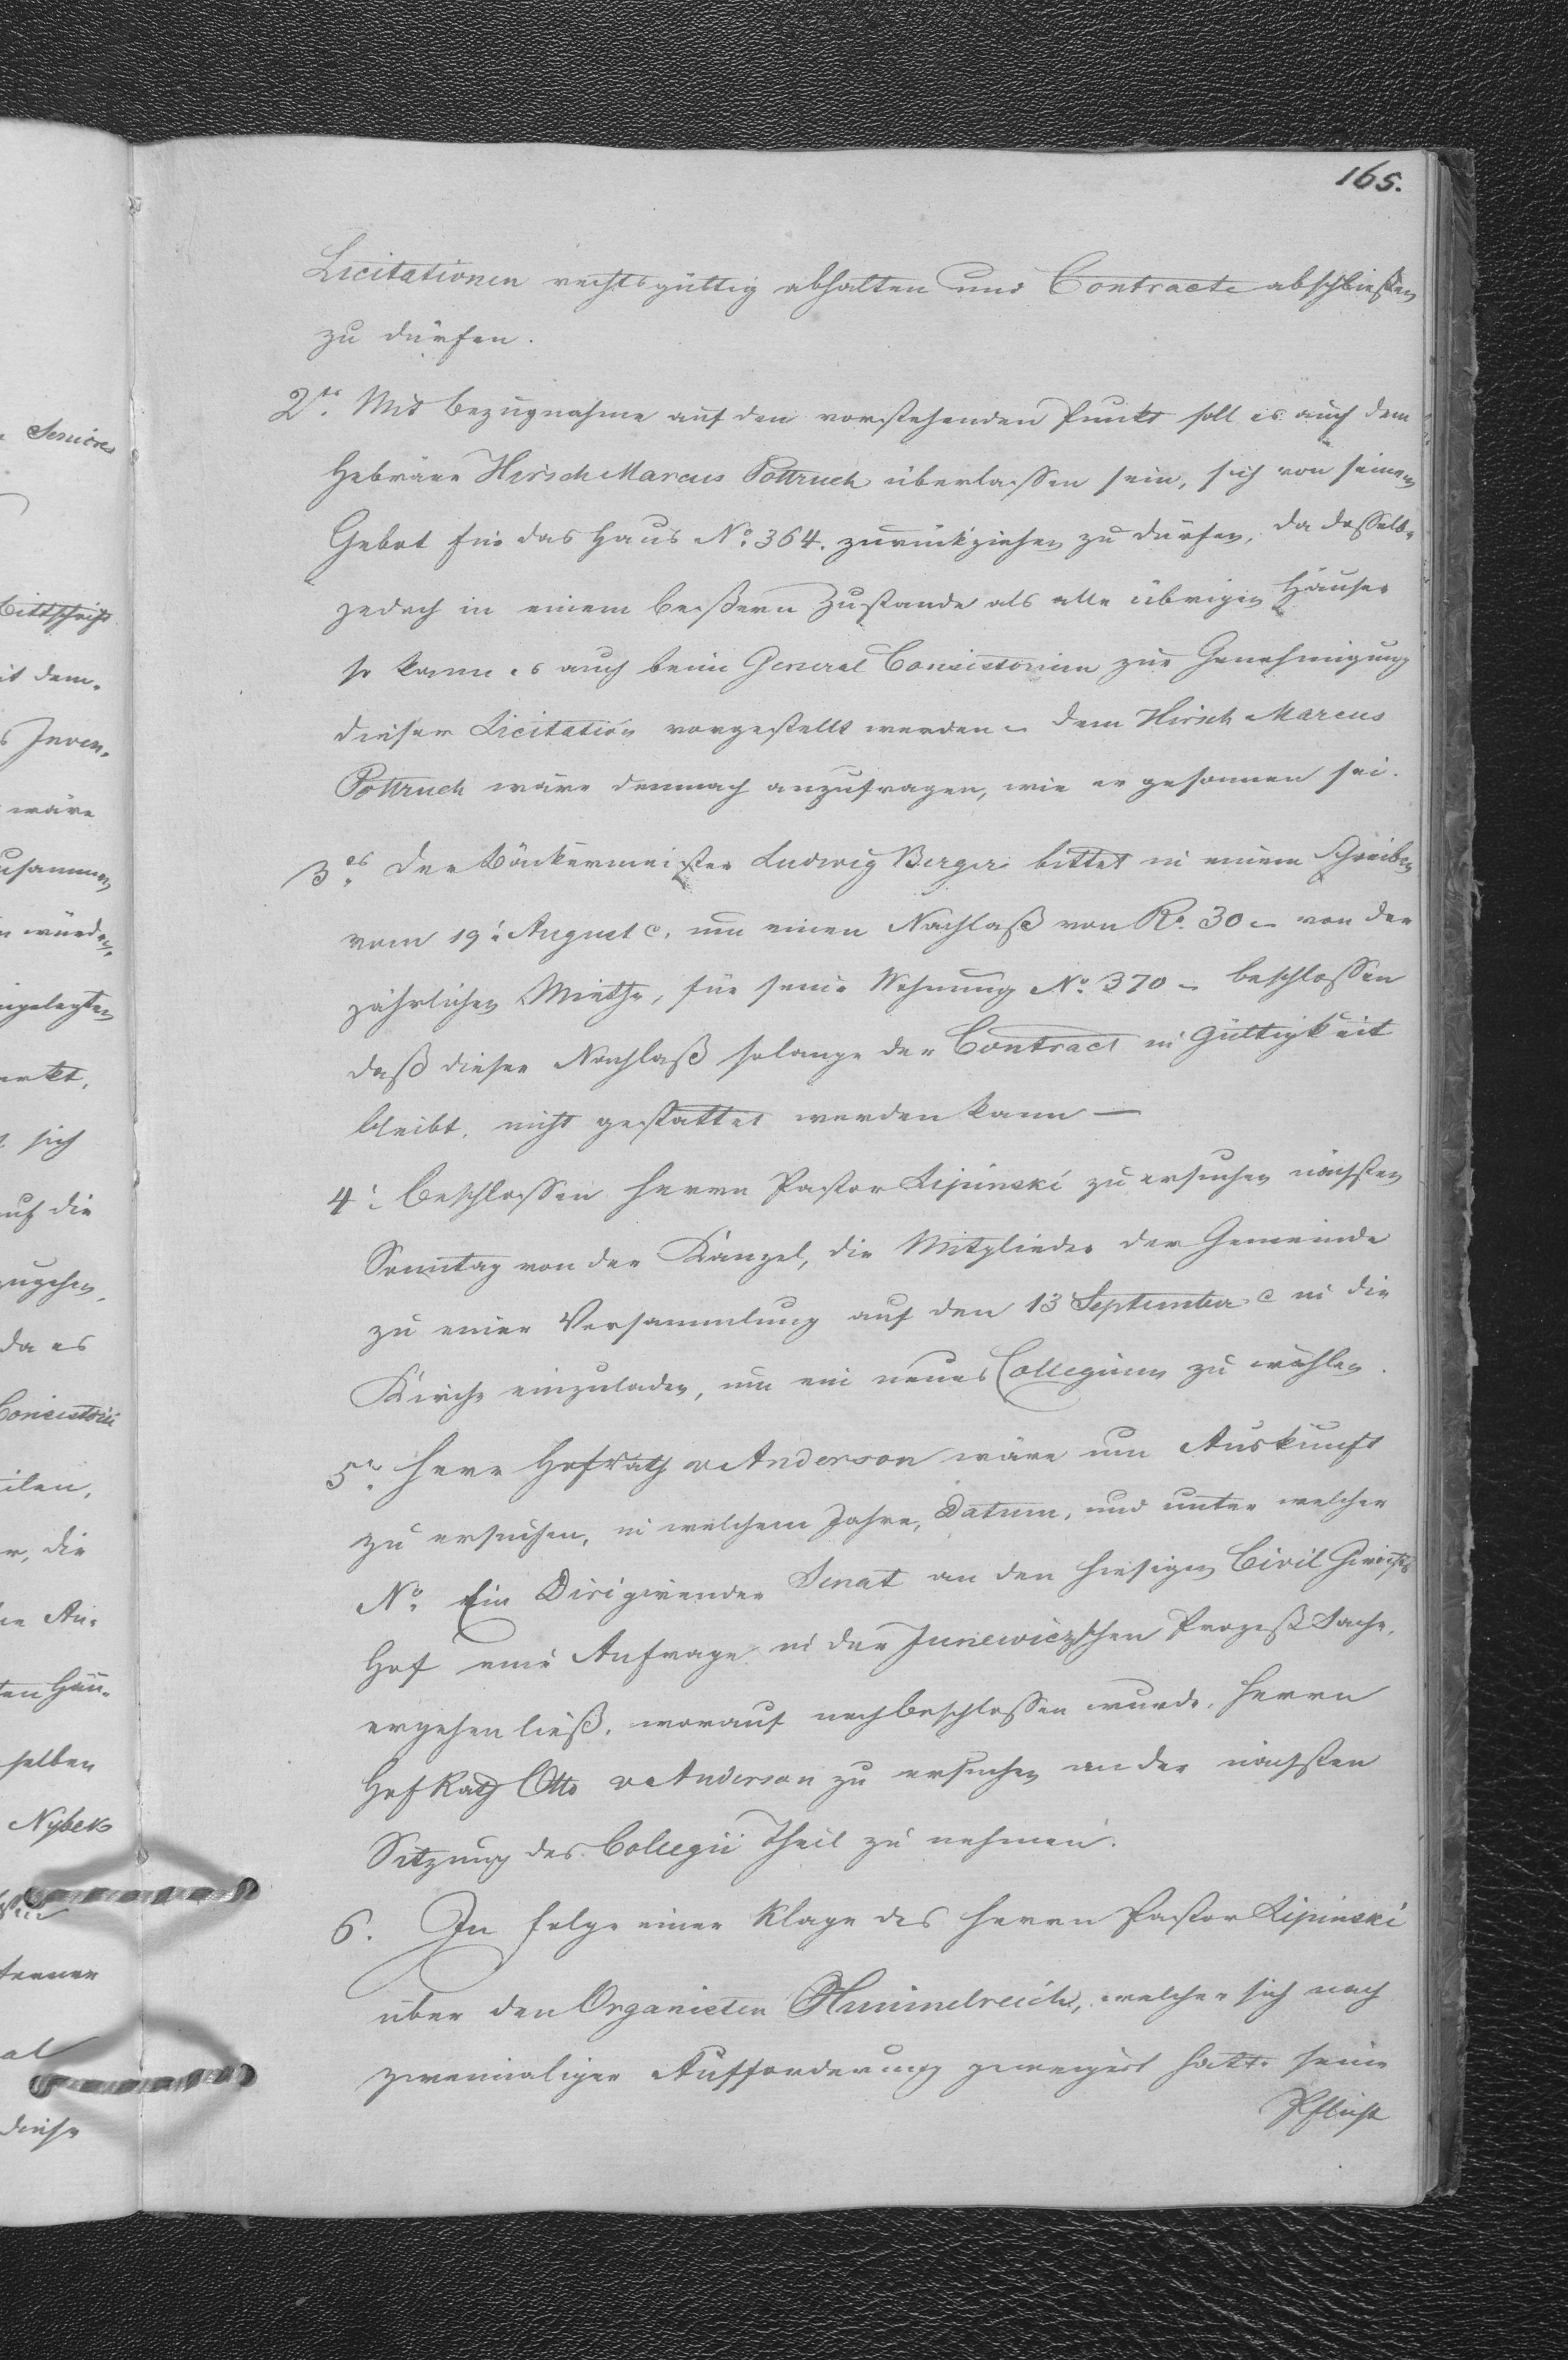 165.
Licitationen rechtsgültig abhalten und Contracte abschließen
zu dürfen.
2tes. Mit Bezugnahme auf den vorstehenden Punkt soll es auch dem
Hebräer Hirsch Marcus Pottruch überlassen sein, sich von seinem
Gebot für das Haus No. 364. zurückziehen zu dürfen, da dasselbe
jedoch in einem beßern Zustande als alle übrigen Häuser
so kann es auch beim General Consistorium zur Genehmigung
dieser Licitation vorgestellt werden – dem Hirsch Marcus
Pottruch wäre demnach anzufragen, wie er gesonnen sei.
3es. Der Bäckermeister Ludwig Berger bittet in einem Schreiben
vom 19. August c. um einen Nachlaß von Ro. 30 – von der
jährlichen Miethe, für seine Wohnung No. 370 – beschlossen
daß dieser Nachlaß solange der Contract in Gültigkeit
bleibt, nicht gestattet werden kann —
4. Beschlossen Herrn Pastor Lipinski zu ersuchen nächsten
Sonntag von der Kanzel, die Mitglieder der Gemeinde
zu einer Versammlung auf den 13 September c in die
Kirche einzuladen, um ein neues Collegium zu wählen.
5. Herr Hofrath v Anderson wäre um Auskunft
zu ersuchen, in welchem Jahre, Datum, und unter welcher
No. Ein Dirigirender Senat an den hiesigen Civil Gerichts
Hof eine Anfrage in der Junewiczschen Prozeß Sache,
ergehen ließ, worauf noch beschlossen wurde, Herrn
Hof Rath Otto v Anderson zu ersuchen an der nächsten
Sitzung des Collegii Theil zu nehmen.
6. In Folge einer Klage des Herrn Pastor Lipinski
über den Organisten Himmelreich, welcher sich nach
zweimaliger Aufforderung geweigert hatte seine
Pflicht
Seniores
Bittschrift
it dem
Inven-
wäre
zusammen
würde
sich
auf die
da es
Consistorii
r, die
ten Häu-
selben
Nybek
diese